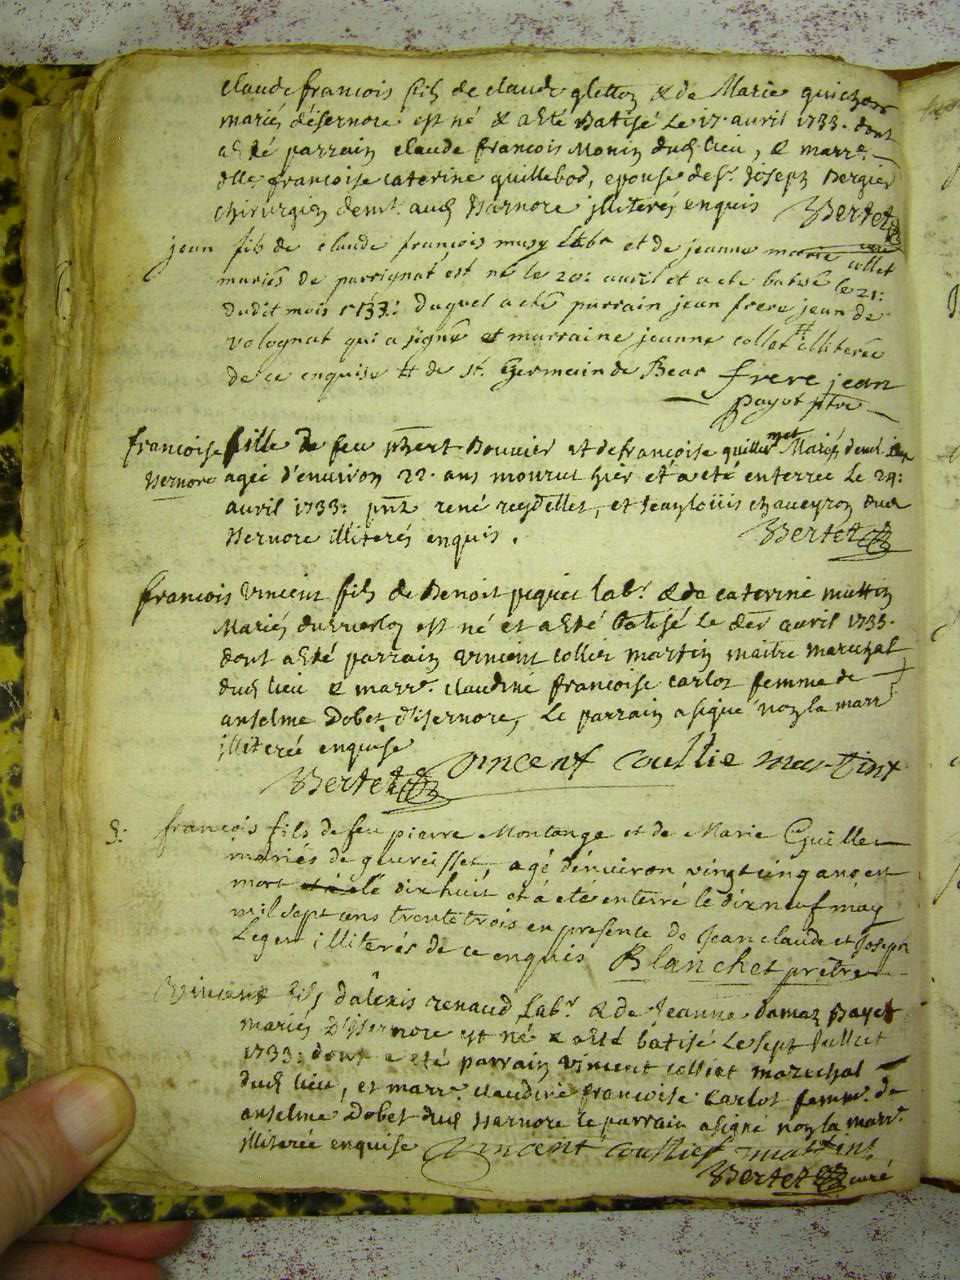 claude françois fils de claude gletton & de Marie guichon
mariés d'isernore est né & a été Batisé Le 17. avril 1733. dont
a été parrain claude françois Monin dud lieu, & marr.e
dlle françoise caterine guillebod, epouse de Sr. Joseph Bergier
chirurgien demt. aud Isernore illiterés enquis Bertet
jean fils de claude françois musy Labr et de jeanne marie collet
mariés de parrignat est né le 20: auril et a ete batisé le 21:
dudit mois 1733: duquel a eté parrain jean frere jean de
volognat qui a signé et marraine jeanne collet # illiterée
de ce enquise # de st. Germain de Bear frere jean
payot ptre
françoise fille de feu phbert Bouvier et de françoise guillermet Mariés dud
Isernore agée d'environ 22. ans mourut hier et a eté enterrée Le 24:
avril 1733: pnt rené reydellet, et Jean loüis chaveyron dud
Isernore illiterés enquis. Bertet
françois vincent fils de Benoit piquet labr. & de caterine muttin
Mariés est né et a été batisé Le der avril 1733.
dont a été parrain vincent collier martin maître marechal
dud lieu & marre. claudine françoise carlot femme de
anselme Dobet d'Isernore, Le parrain a signé non la marre
illiterée enquise
Bertet vincent coullie martint
S. françois fils de feu pierre Montange et de Marie Guillet
mariés de geureisset, agé d'enuiron vingt cinq ans est
mort le dix huit et a eté enterré le dix neuf may
mil sept cens trente trois en presence de Jean claude et Joseph
Leger illiterés de ce enquis Blanchet prêtre
Vincent fils d'alexis renaud Labr. & de Jeanne damaz Bayet
mariés D'Isernore est né & a été batisé Le sept Juillet
1733: dont a eté parrain vincent colliet marechal
dud lieu, et marre. claudine françoise carlot femme de
anselme Dobet dud Isernore le parrain a signé non la marre.
illiterée enquise Vincent coullief martint
Bertet curé